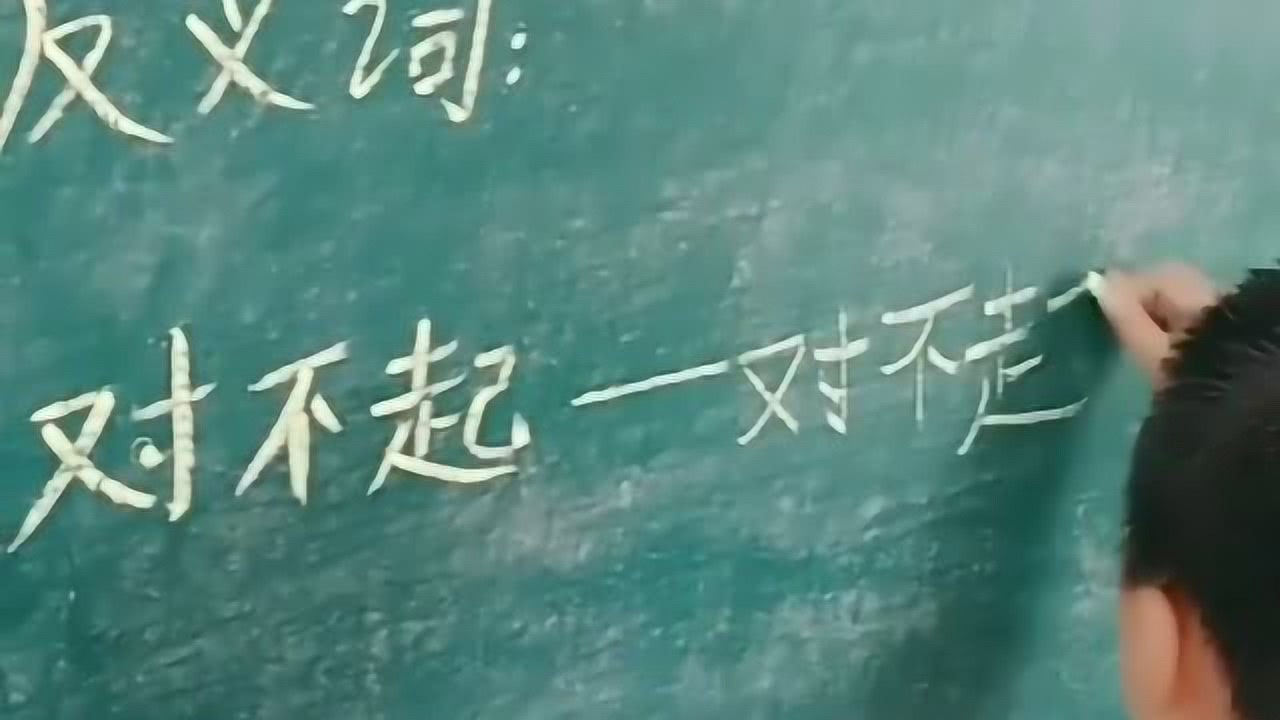 反义词:
对不起—对不起